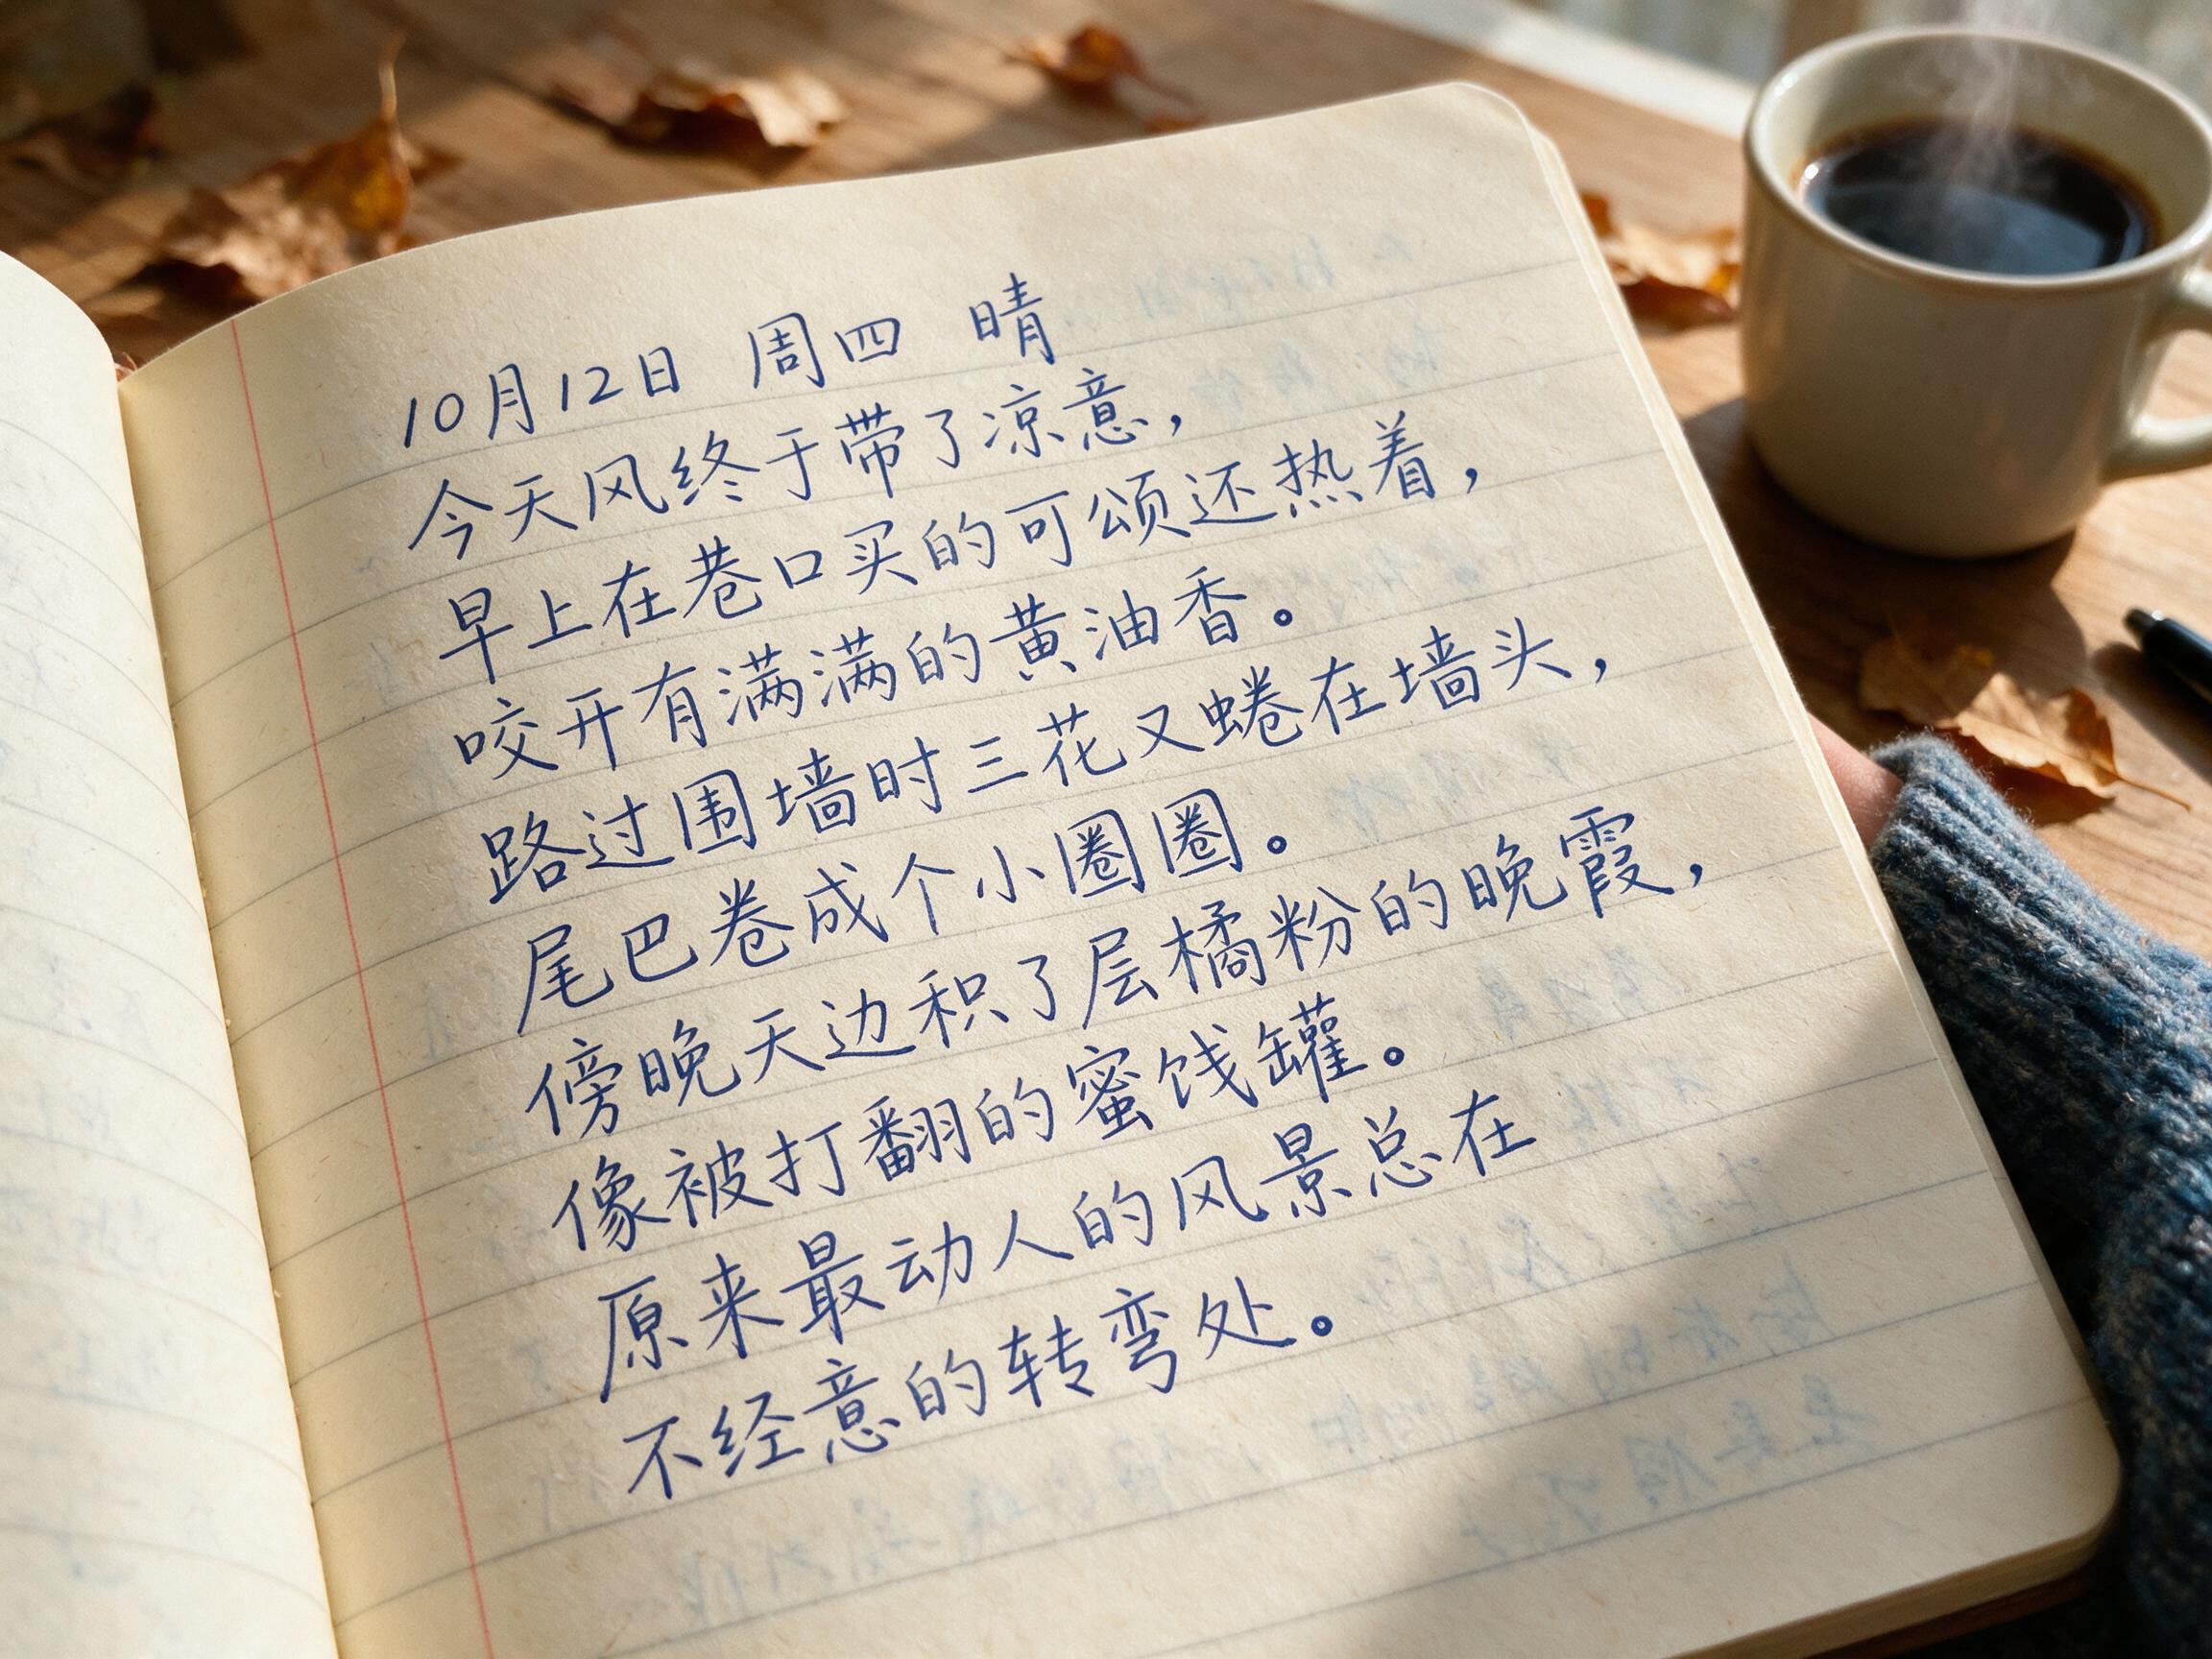 10月12日 周四 晴
今天风终于带了凉意，
早上在巷口买的可颂还热着，
咬开有满满的黄油香。
路过围墙时三花又蜷在墙头，
尾巴卷成个小圈圈。
傍晚天边积了层橘粉的晚霞，
像被打翻的蜜饯罐。
原来最动人的风景总在
不经意的转弯处。